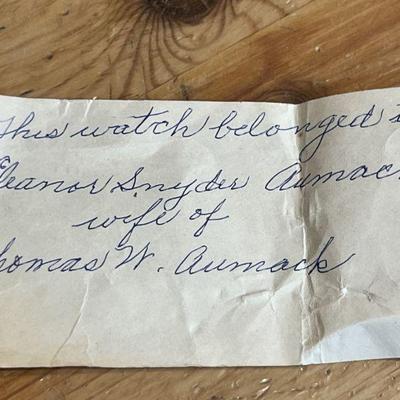 This watch belonged t
Eleanor Snyder Aumac
wife of
homas W. Aumack